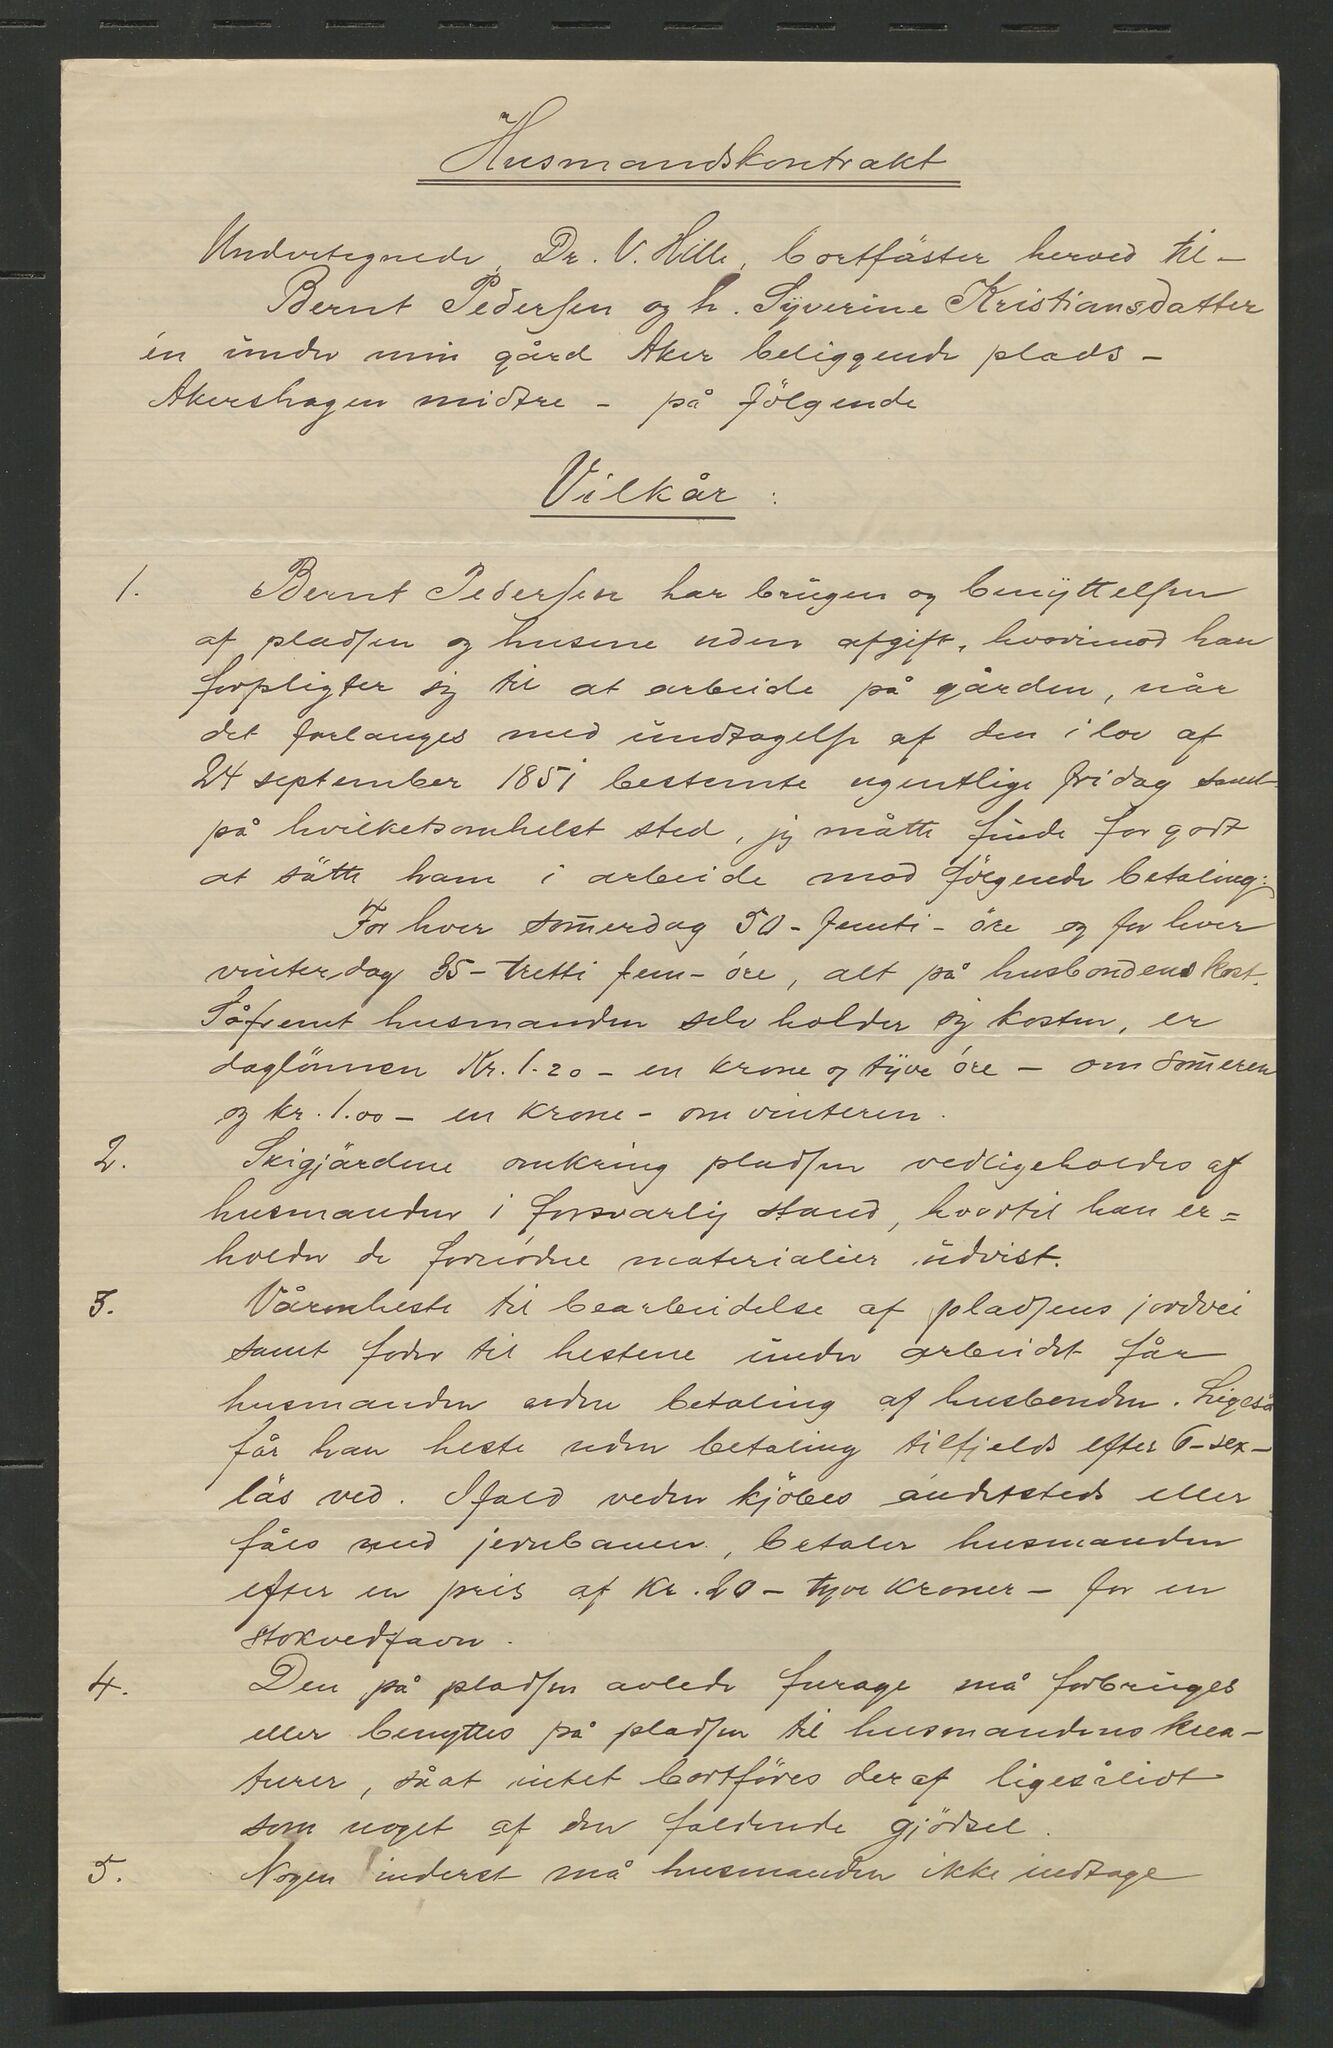 Husmandskontrakt
Undertegnede, Dr. V. Hille, bortfäster herved til –
Bernt Pedersen og h. Syverine Kristiansdatter
én under min gård Aker beliggende plads –
Akershagen midtre – på följende
Vilkår :
1. Bernt Pedersen har brugen og benyttelsen
af pladsen og husene uden afgift, hvorimod han
forpligter sig til at arbeide på gården, når
det forlanges med undtagelse af den i lov af
24 september 1851 bestemte ugentlige fridag samt
på hvilketsomhelst sted, jeg måtte finde for godt
at sätte ham i arbeide mod fölgende betaling:
For hver somerdag 50 – femti – öre og for hver
vinterdag 35 – tretti fem – öre, alt på husbondens kost.
Såfremt husmanden selv holder sig kosten, er
daglönnen Kr. 1.20 – en krone og tyve öre – om someren
og kr. 1.00 – en krone – om vinteren.
2. Skigjärdene omkring pladsen vedligeholdes af
husmanden i forsvarlig stand, hvortil han er=
holder de fornödne materialier udvist.
3. Våronheste til bearbeidelse af pladsens jordvei
samt foder til hestene under arbeidet får
husmanden uden betaling af husbonden. Ligeså
får han heste uden betaling tilfjelds efter 6 – sex –
läs ved. Ifald veden kjöbes andetsteds eller
fåes med jernbanen, betaler husmanden
efter en pris af kr. 20 – tyve kroner – for en
stokvedfavn.
4. Den på pladsen avlede furage må forbruges
eller benyttes på pladsen til husmandens krea–
turer, såat intet bortföres deraf ligesålidt
som noget af den faldende gjödsel.
5. Nogen inderst må husmanden ikke indtage